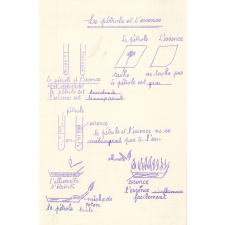 Le pétrole et l'essence
le pétrole l'essence
tache ne tache pas
le pétrole et l'essence
le pétrole est gras
le pétrole est
l'essence est transparente
pétrole
essence
le pétrole et l'essence ne se
mélangent pas à l'eau.
allumette
l'allumette
s'éteint
essence
l'essence s'enflamme
facilement
mèche de
coton
le pétrole brûle